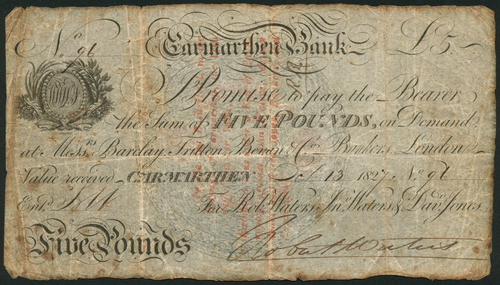 No. 96 Carmarthen Bank £5
I Promise to pay the Bearer
the Sum of FIVE POUNDS, on Demand
at Messrs. Barclay, Tritton, Bevan & Co. Bankers, London
Value received CARMARTHEN 13 1827 No. 96
Entd. For Robt. Waters, Jno. Waters & Davd. Jones.
Five Pounds Robert Waters